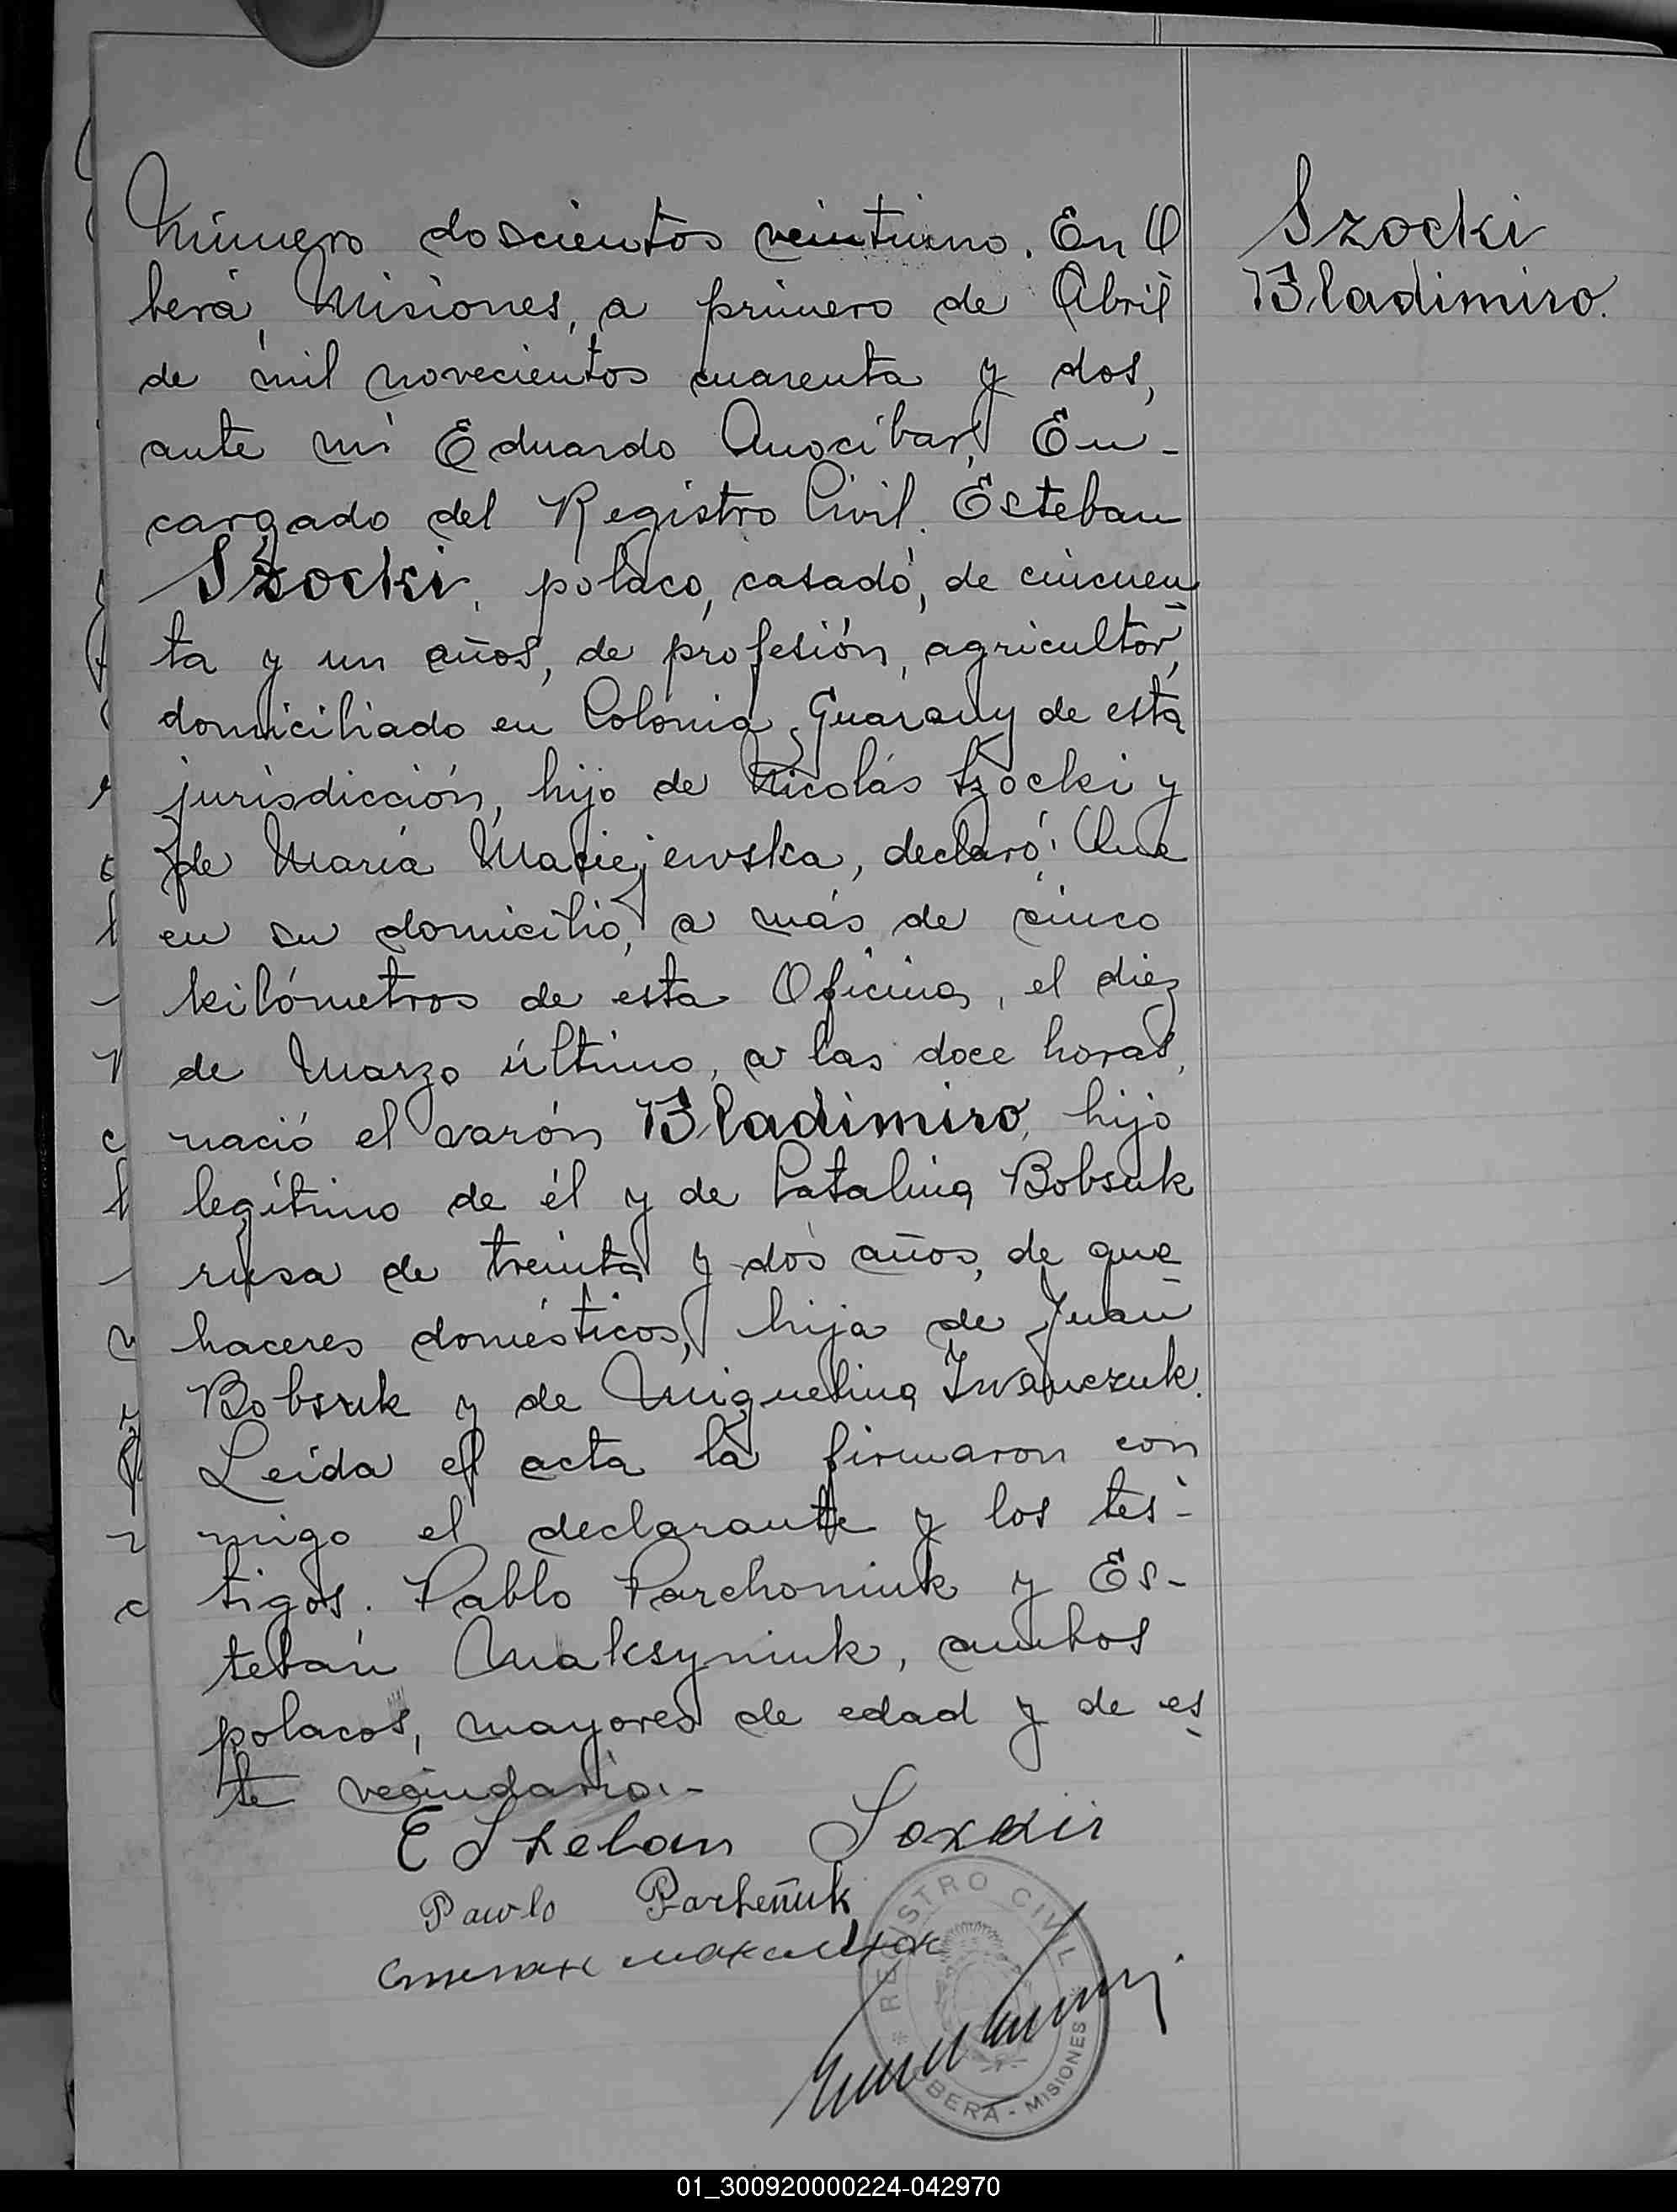 Número doscientos veintiuno. En O
berá, Misiones, a primero de Abril
de mil novecientos cuarenta y dos,
ante mí Eduardo Anocíbar, En-
cargado del Registro Civil. Esteban
Szocki, polaco, casado, de cincuen
ta y un años, de profesión, agricultor,
domiciliado en Colonia Guarany de esta
jurisdicción, hijo de Nicolás Szocki y
de María Maciejewska, declaró: Que
en su domicilio, a más de cinco
kilómetros de esta Oficina, el diez
de Marzo último, a las doce horas,
nació el varón Bladimiro, hijo
legítimo de él y de Catalina Bobsuk
rusa de treinta y dos años, de que
haceres domésticos, hija de Juan
Bobsuk y de Miguelina Iwanczuk.
Leída el acta la firmaron con
migo el declarante y los tes-
tigos. Pablo Parchoniuk y Es-
teban Maksyniuk, ambos
polacos, mayores de edad y de es
te vecindario.-
Szocki
Bladimiro.
Pawlo Parheñuk
REGISTRO CIVIL
OBERÁ - MISIONES
01_300920000224-042970